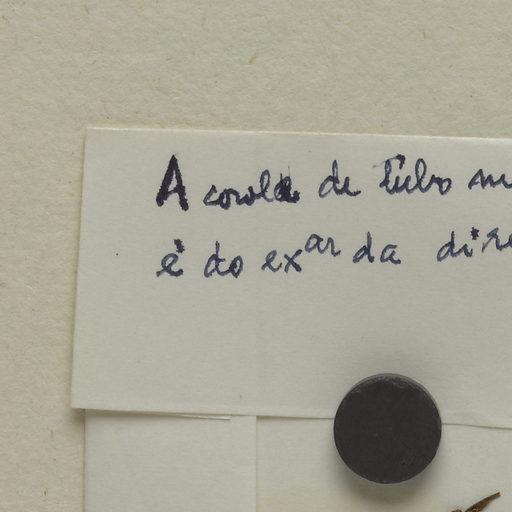 A corola de tubo
é do ex ar da